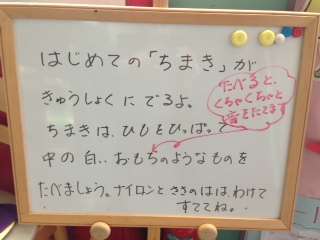 はじめての「ちまき」が
きゅうしょくにでるよ。
たべると、
くちゃくちゃと
音をたてます
ちまきは、ひもをひっぱって
中の白い、おもちのようなものを
たべましょう。ナイロンとささのはは、わけて
すててね。